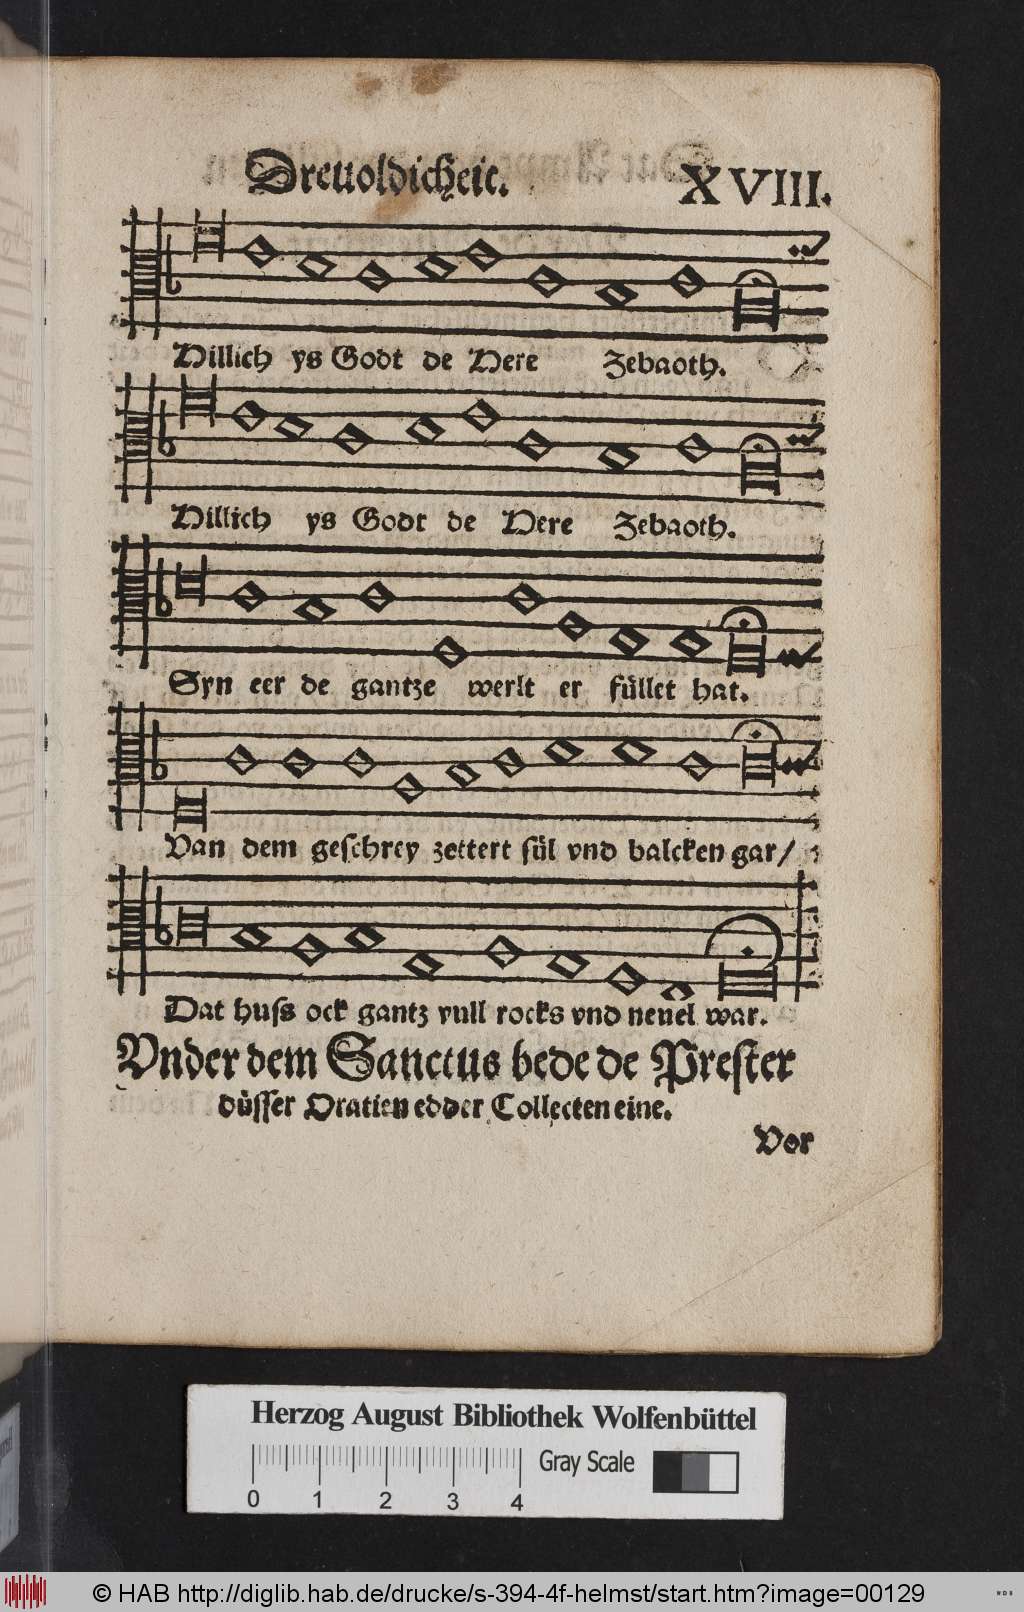 Dreuoldicheit.
XVIII.
Hillich ys Godt de Here Zebaoth.
Hillich ys Godt de Here Zebaoth.
Syn eer de gantze werlt er füllet hat.
Van dem geschrey zettert sül vnd balcken gar/
Dat huss ock gantz vull rocks vnd neuel war.
Vnder dem Sanctus bede de Prester
düsser Oratien edder Collecten eine.
Vor
Herzog August Bibliothek Wolfenbüttel
Gray Scale
0 1 2 3 4
© HAB http://diglib.hab.de/drucke/s-394-4f-helmst/start.htm?image=00129